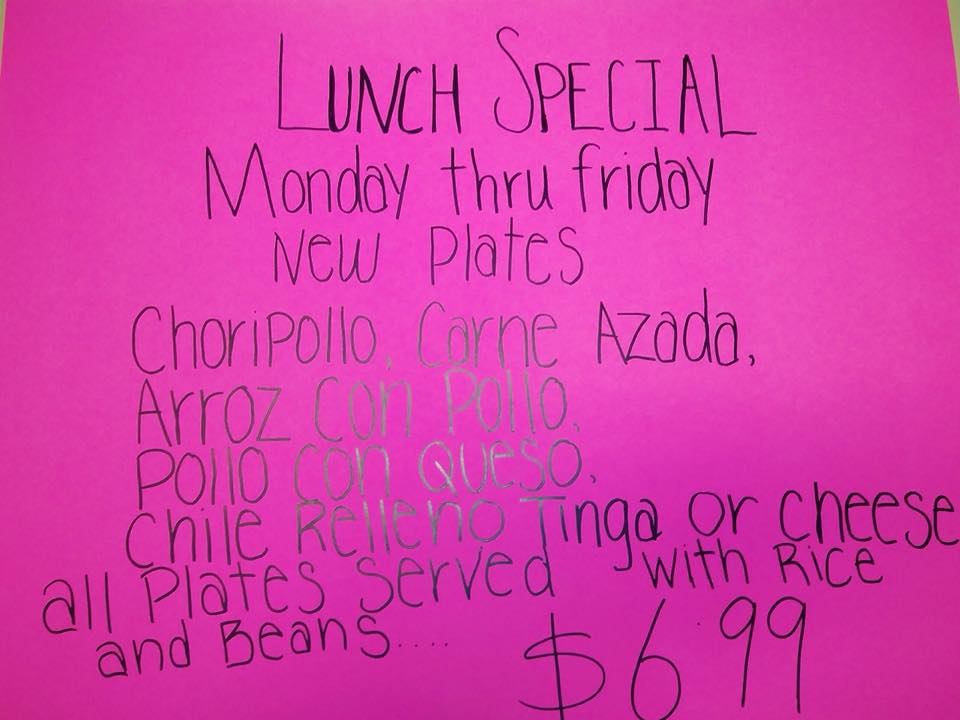 LUNCH SPECIAL
Monday thru friday
New Plates
Choripollo, Carne Azada,
Arroz con Pollo,
Pollo con Queso,
Chile Relleno Tinga or cheese
all Plates Served with Rice
and Beans....
$6.99